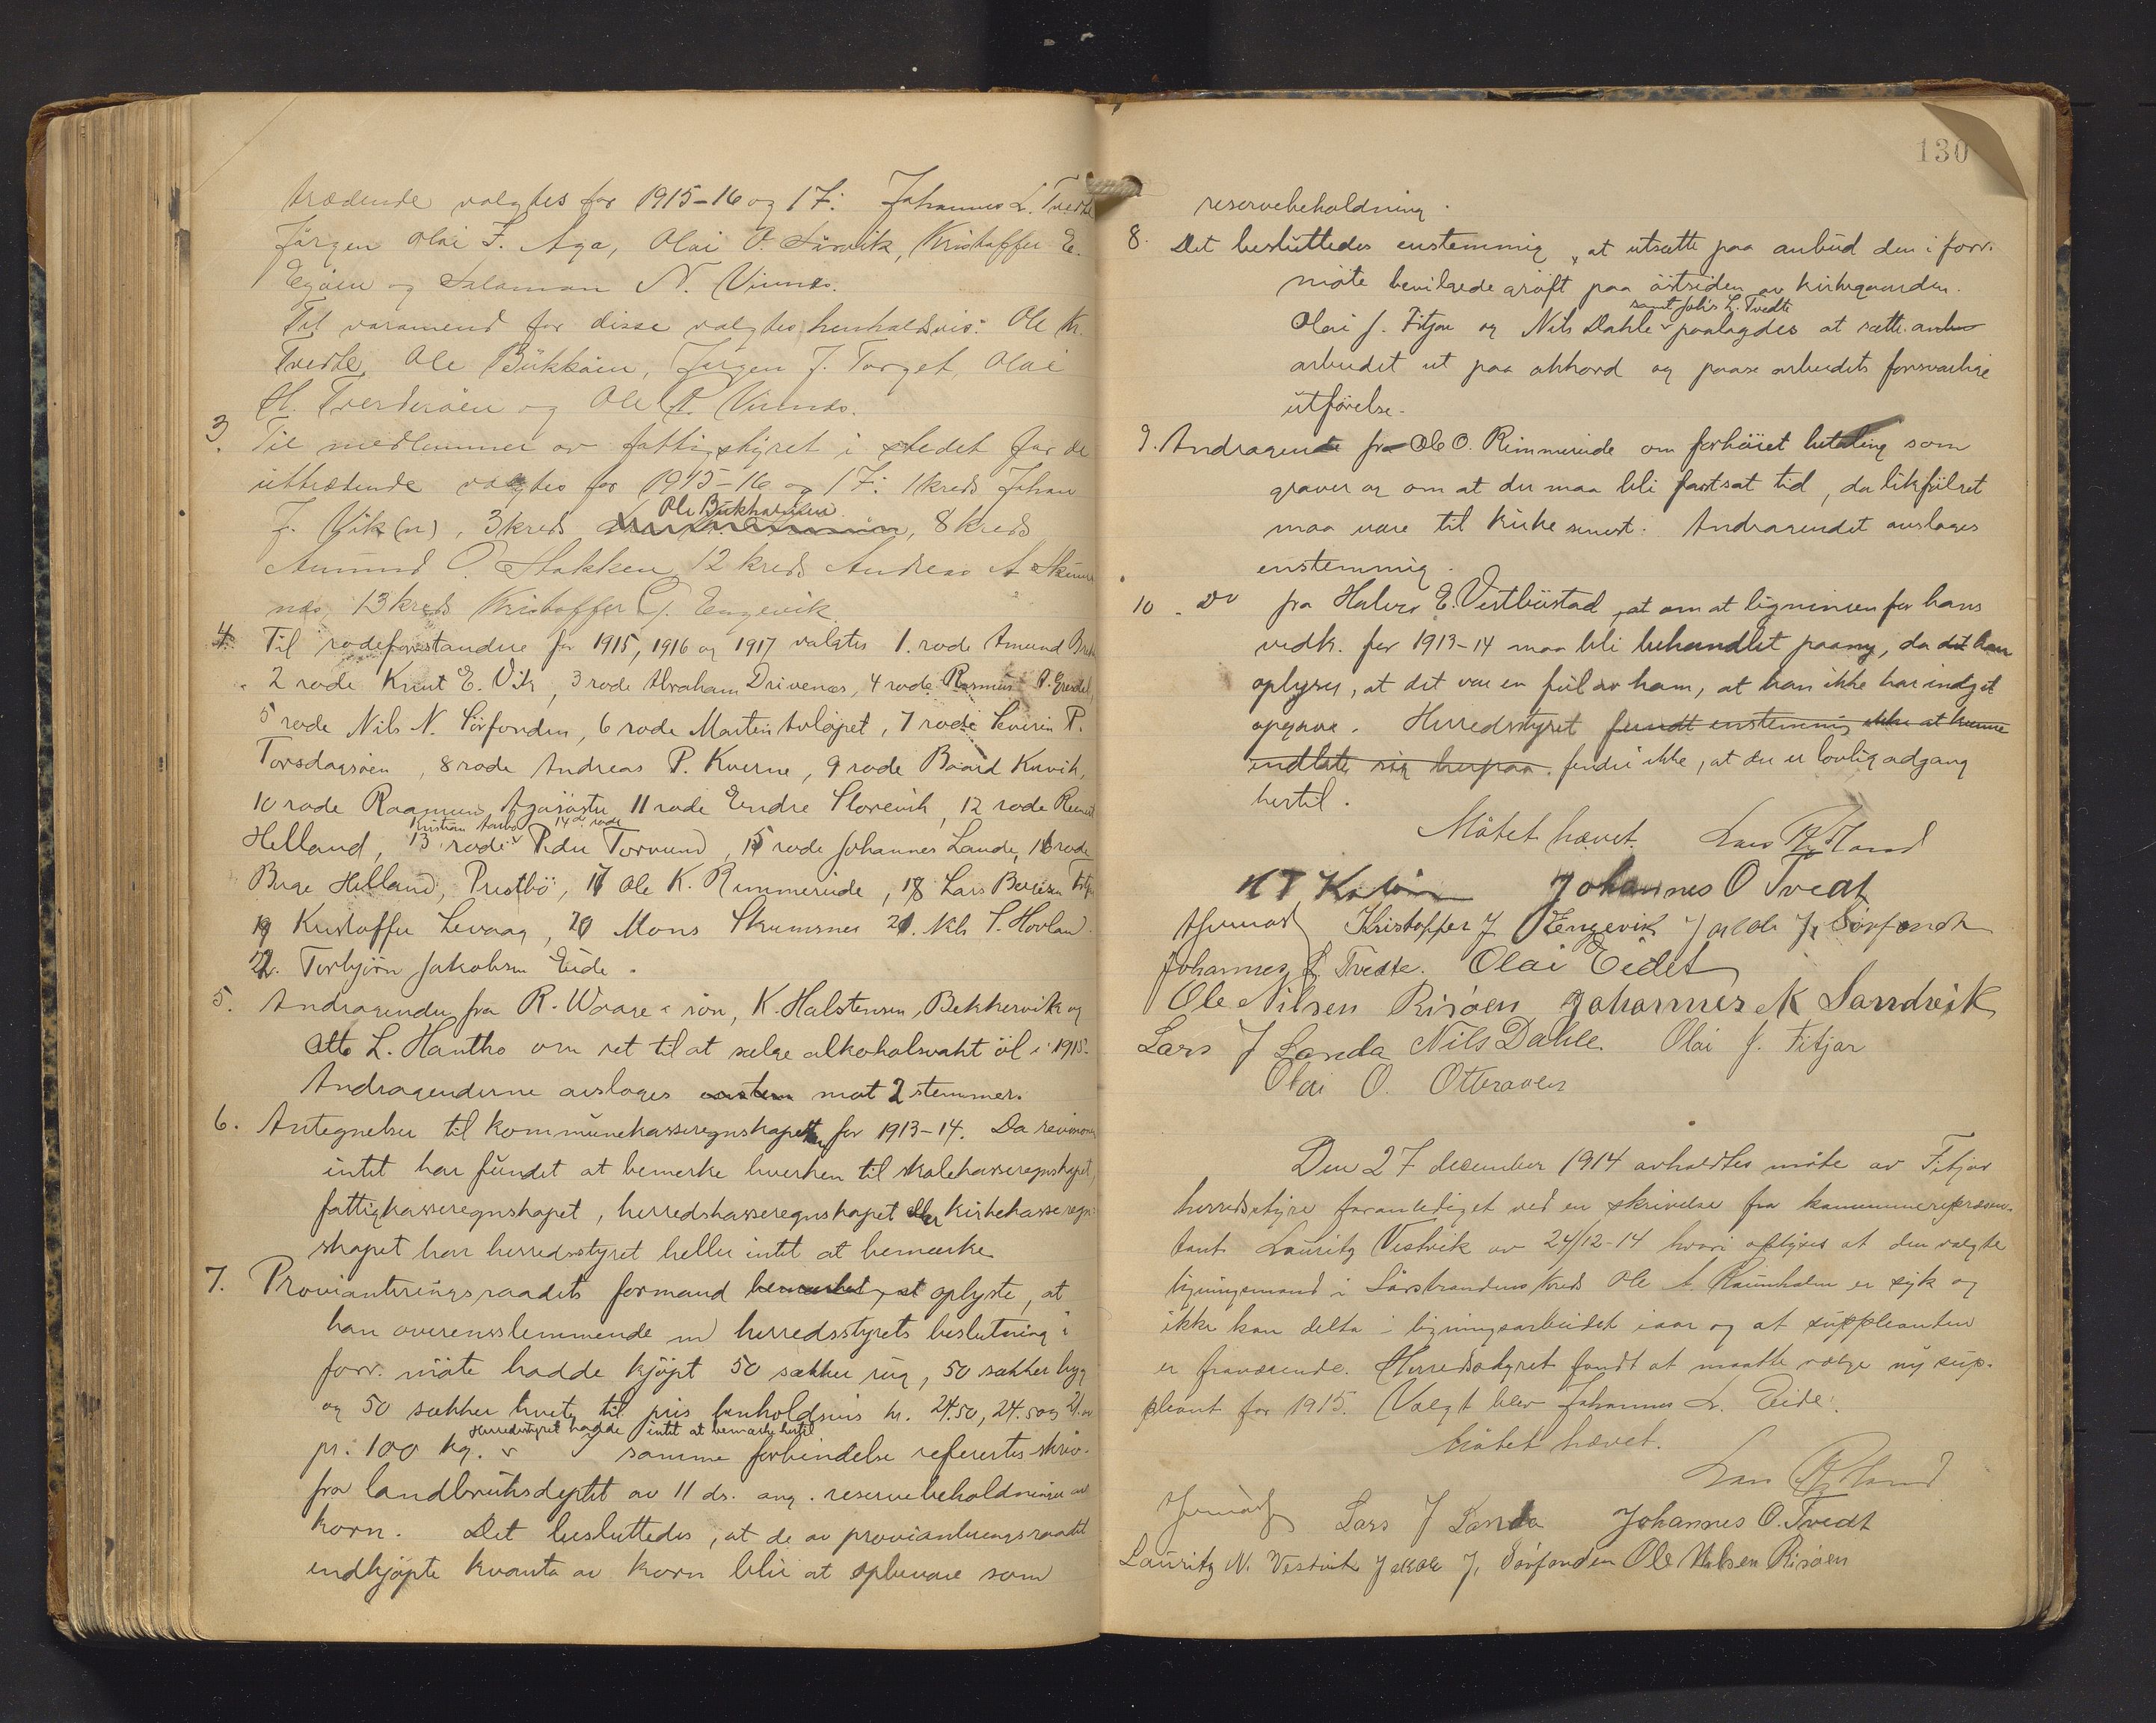 trædende valgtes for 1915-16 og 17: Johannes L. Tvedte
Jørgen Olai J. Aga, Olai O. Sørvik, Kristoffer E.
Egøien og Salamon N. Vinnes.
Til varamend for disse valgtes henholdsvis: Ole K.
Tvedte, Ole Bukkøien, Jørgen J. Torget, Olai
H. Tverderøen og Ole P. Vinnes.
3. Til medlemmer av fattigstyret i stedet for de
uttrædende valgtes for 1915-16 og 17: 1 kreds Johan
Ole Bukholmen
J. Vik (n), 3 kreds , 8 kreds
Amund O. Stakken, 12 kreds Andreas A Skims
nes, 13 kreds Kristoffer J. Engevik.
4. Til rodeforstandere for 1915, 1916 og 1917 valgtes 1. rode Amund
2 rode Knut E. Vik, 3 rode Abraham Drivenes, 4 rode Rasmus P.
5 rode Nils N. Sørfonden, 6 rode Martin Avløpet, 7 rode Severin P.
Torsdagsøen, 8 rode Andreas P. Kverne, 9 rode Baard Kuvik,
10 rode Rasmus Agasøster, 11 rode Endre Storevik, 12 rode
Kristian Aarbø 14de rode
Helland, 13 rode Peder Torvund, 15 rode Johannes Landa, 16 rode
Berge Helland, Prestbø, 17 Ole K. Rimmereide, 18 Lars Fitjar
19 Kristoffer Levaag, 20 Mons Skumsnes 21. Nils S. Hovland.
22. Torbjørn Jakobsen Eide.
5. Andragender fra R. Waage & søn, K. Halstensen, Bekkervik og
Otto L. Hantho om ret til at sælge alkoholsvakt øl i 1915.
Andragenderne avsloges enstem mot 2 stemmer.
6. Antegnelser til kommunekasseregnskapet for 1913-14. Da revisionen
intet har fundet at bemerke hverken til skolekasseregnskapet,
fattigkasseregnskapet, herredskasseregnskapet eller kirkekasseregn-
skapet har herredsstyret heller intet at bemerke
7. Provianteringsraadets formand bemerket, at oplyste, at
han overensstemmende m) herredsstyrets beslutning i
forr. møte hadde kjøpt 50 sækker rug, 50 sækker byg
og 50 sækker hvete til pris henholdsvis kr. 24.50, 24.50 og 21.
Herredsstyret hadde intet at bemerke hertil
pr. 100 kg. samme forbindelse refereertes skriv.
fra landbruksdeptet av 11 ds. ang. reservebeholdninger av
korn. Det besluttedes, at de av provianteringsraadet
indkjøpte kvanta av korn blir at opbevare som
130
reservebeholdning.
8. Det besluttedes enstemmig, at utsætte paa anbud den i forr.
møte bevilgede grøft paa østsiden av kirkegaarden.
samt Johs L. Tvedte
Olai J. Fitjar og Nils Dahle paalagdes at sætte
arbeidet ut paa akkord og paase arbeidets forsvarlige
utførelse.
9. Andragende fra Ole O. Rimmereide om forhøiet betaling som
graver og om at der maa bli fastsat tid, da likfølget
maa være til kirke senest. Andragendet avsloges
enstemmig.
10. Do fra Halvor E. Vestbøstad, at om at ligningen for hans
vedk. for 1913-14 maa bli behandlet paany, da det han
oplyser, at det var en feil av ham, at han ikke har indgit
opgave. Herredsstyret fandt enstemmig ikke at kunne
indlate sig herpaa. finder ikke, at der er lovlig adgang
hertil.
Møtet hævet. Lars Rydland
Johannes O Tvedt
Kristoffer J Engevik Jakob J. Sørfonden
Johannes L Tvedte. Olai Eidet
Ole Nilsen Risøen Johannes K Sandvik
Lars J Landa Nils Dahle. Olai J. Fitjar
Olai O. Otterøen
Den 27 december 1914 avholdtes møte av Fitjar
herredsstyre foranlediget ved en skrivelse fra kommunerepræsen-
tant Lauritz Vestvik av 24/12-14 hvori oplyses at den valgte
ligningsmand i Sørstrandens kreds Ole A. Raunholm er syk og
ikke kan delta i ligningsarbeidet iaar og at suppleanten
er fraværende. Herredsstyret fandt at maatte vælge ny sup-
pleant for 1915. Valgt blev Johannes L. Eide.
Møtet hævet.
Lars Rydland
Lars J Landa Johannes O. Tvedt
Lauritz N. Vestvik Jakob J. Sørfonden Ole Nilsen Risøen